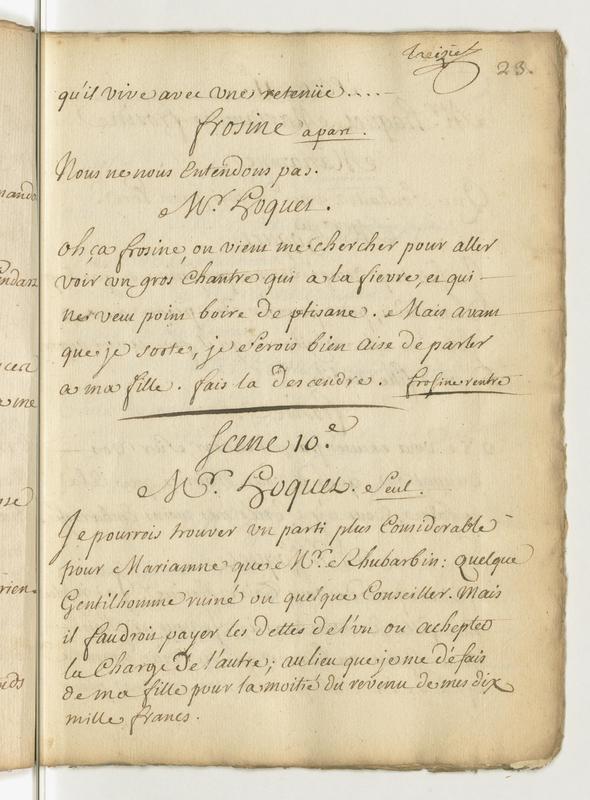 treizie
23.
qu'il vive avec une retenüe.....
frosine apart.
Nous ne nous Entendons pas.
Mr. Hoquet.
oh ça frosine, on vient me chercher pour aller
voir un gros chantre qui a la fievre, et qui
ne veut point boire de ptisane. Mais avant
que je sorte, je serois bien aise de parler
a ma fille. fais la descendre. frosine rentre
Scene 10.e
Mr. Hoquet. Seul.
Je pourrois trouver un parti plus Considerable
pour Mariamne que Mr. Rhubarbin: quelque
Gentilhomme ruiné ou quelque Conseiller. Mais
il faudroit payer les dettes de l'un ou achepter
la Charge de l'autre; au lieu que je me défais
de ma fille pour la moitié du revenu de mes dix
mille francs.